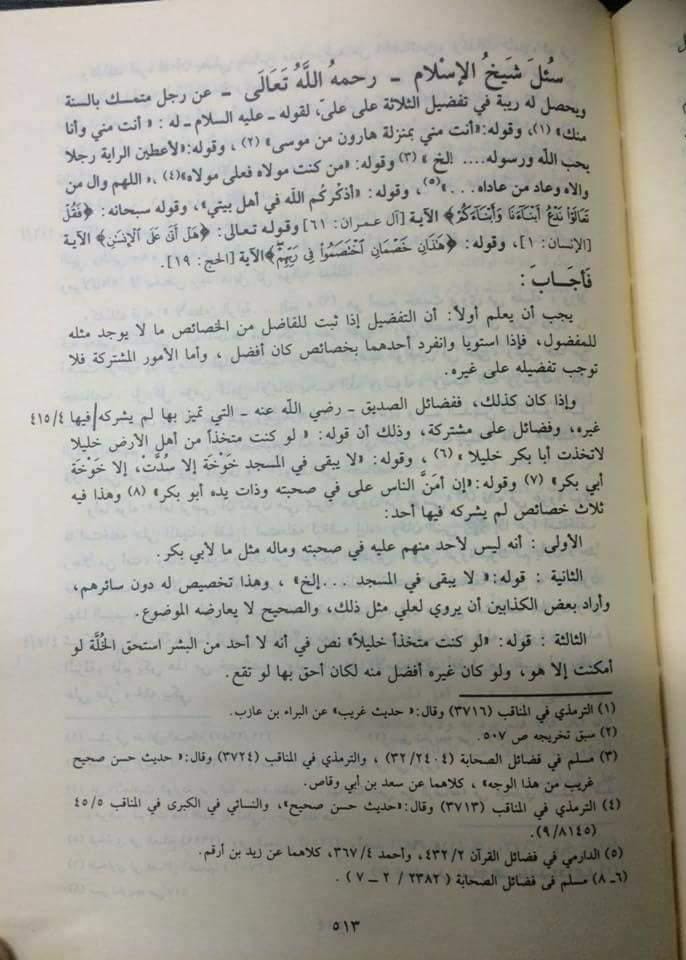 سُئلَ شَيخُ الإسْلام ـ رحمهُ اللَّهُ تَعَالَى ـ عن رجل متمسك بالسنة
ويحصل له ريبة في تفضيل الثلاثة على علىّ، لقوله ـ عليه السلام ـ له : « أنت مني وأنا
منك» (١)، وقوله:«أنت مني بمنزلة هارون من موسى» (٢) ، وقوله:«لأعطين الراية رجلا
يحب الله ورسوله.... إلخ » (٣) وقوله: «من كنت مولاه فعلى مولاه»(٤) ،« اللهم وال من
والاه وعاد من عاداه . . .»(٥)، وقوله: «أذكركم الله في أهل بيتي»، وقوله سبحانه: ﴿فَقُلْ
تَعَالَوْا نَدْعُ أَبْنَاءَنَا وَأَبْنَاءَكُمْ﴾ الآية [آل عمران: ٦١] وقوله تعالى: ﴿هَلْ أَتَى عَلَى الْإِنسَانِ﴾ الآية
[الإنسان: ١]، وقوله: ﴿هَذَانِ خَصْمَانِ اخْتَصَمُوا فِي رَبِّهِمْ﴾الآية [الحج: ١٩].
فَأجَـابَ :
يجب أن يعلم أولاً: أن التفضيل إذا ثبت للفاضل من الخصائص ما لا يوجد مثله
للمفضول، فإذا استويا وانفرد أحدهما بخصائص كان أفضل ، وأما الأمور المشتركة فلا
توجب تفضيله على غيره.
وإذا كان كذلك، ففضائل الصديق ـ رضي الله عنه ـ التي تميز بها لم يشركه/فيها ٤١٥/٤
غيره، وفضائل على مشتركة، وذلك أن قوله: « لو كنت متخذاً من أهل الأرض خليلا
لاتخذت أبا بكر خليلا » (٦) ، وقوله: «لا يبقى في المسجد خَوْخَة إلا سُدَّتْ، إلا خَوْخَة
أبي بكر» (٧) وقوله:«إن أمَنَّ الناس على في صحبته وذات يده أبو بكر» (٨) وهذا فيه
ثلاث خصائص لم يشركه فيها أحد:
الأولى : أنه ليس لأحد منهم عليه في صحبته وماله مثل ما لأبي بكر.
الثانية : قوله: « لا يبقى في المسجد ...إلخ» ، وهذا تخصيص له دون سائرهم،
وأراد بعض الكذابين أن يروي لعلي مثل ذلك، والصحيح لا يعارضه الموضوع.
الثالثة : قوله: «لو كنت متخذاً خليلاً» نص في أنه لا أحد من البشر استحق الخُلَّة لو
أمكنت إلا هو، ولو كان غيره أفضل منه لكان أحق بها لو تقع.
(١) الترمذي في المناقب (٣٧١٦) وقال:« حديث غريب» عن البراء بن عازب.
(٢) سبق تخريجه ص ٥٠٧.
(٣) مسلم في فضائل الصحابة (٣٢/٢٤٠٤) ، والترمذي في المناقب (٣٧٢٤) وقال:« حديث حسن صحيح
غريب من هذا الوجه» ، كلاهما عن سعد بن أبي وقاص.
(٤) الترمذي في المناقب (٣٧١٣) وقال:«حديث حسن صحيح»، والنسائي في الكبرى في المناقب ٤٥/٥
(٩/٨١٤٥).
(٥) الدارمي في فضائل القرآن ٤٣٢/٢، وأحمد ٣٦٧/٤، كلاهما عن زيد بن أرقم.
(٦ـ ٨) مسلم فى فضائل الصحابة ( ٢٣٨٢ / ٢ ـ ٧ ) .
٥١٣